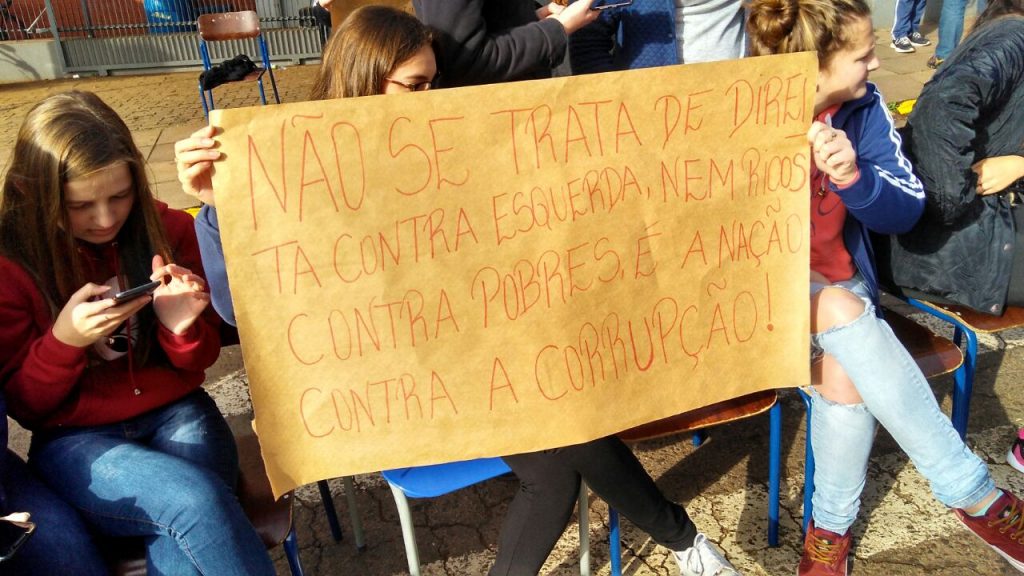 NÃO SE TRATA DE DIREI
TA CONTRA ESQUERDA, NEM RICOS
CONTRA POBRES. É A NAÇÃO
CONTRA A CORRUPÇÃO!